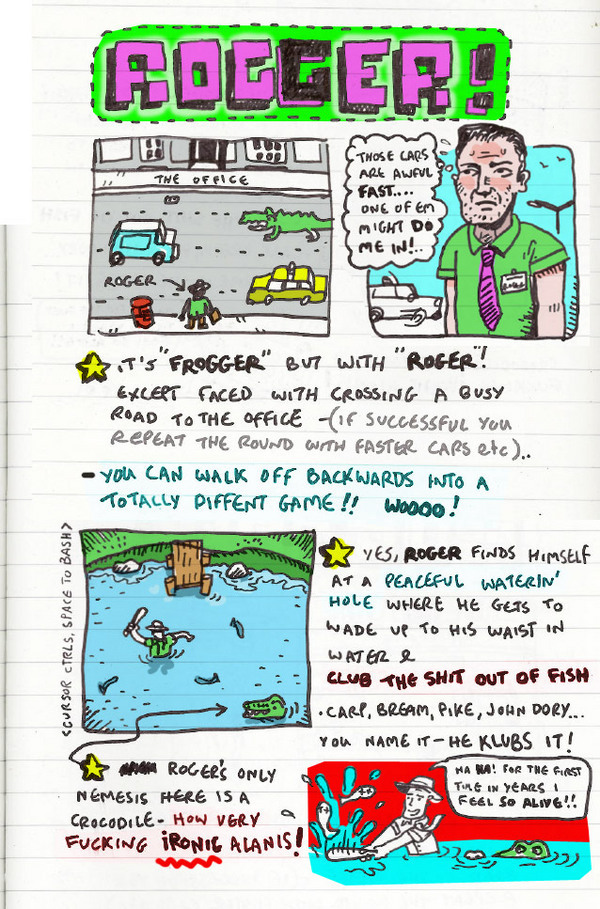 ROGGER!
THE OFFICE
ROGER
THOSE CARS
ARE AWFUL
FAST....
ONE OF EM
MIGHT DO
ME IN!..
IT'S "FROGGER" BUT WITH "ROGER"!
EXCEPT FACED WITH CROSSING A BUSY
ROAD TO THE OFFICE - (IF SUCCESSFUL YOU
REPEAT THE ROUND WITH FASTER CARS etc)..
- YOU CAN WALK OFF BACKWARDS INTO A
TOTALLY DIFFENT GAME!! WOOOO!
<CURSOR CTRLS, SPACE TO BASH>
YES, ROGER FINDS HIMSELF
AT A PEACEFUL WATERIN'
HOLE WHERE HE GETS TO
WADE UP TO HIS WAIST IN
WATER &
CLUB THE SHIT OUT OF FISH
. CARP, BREAM, PIKE, JOHN DORY...
YOU NAME IT - HE KLUBS IT!
ROGER'S ONLY
NEMESIS HERE IS A
CROCODILE - HOW VERY
FUCKING IRONIC ALANIS!
HA HA! FOR THE FIRST
TIME IN YEARS I
FEEL SO ALIVE!!